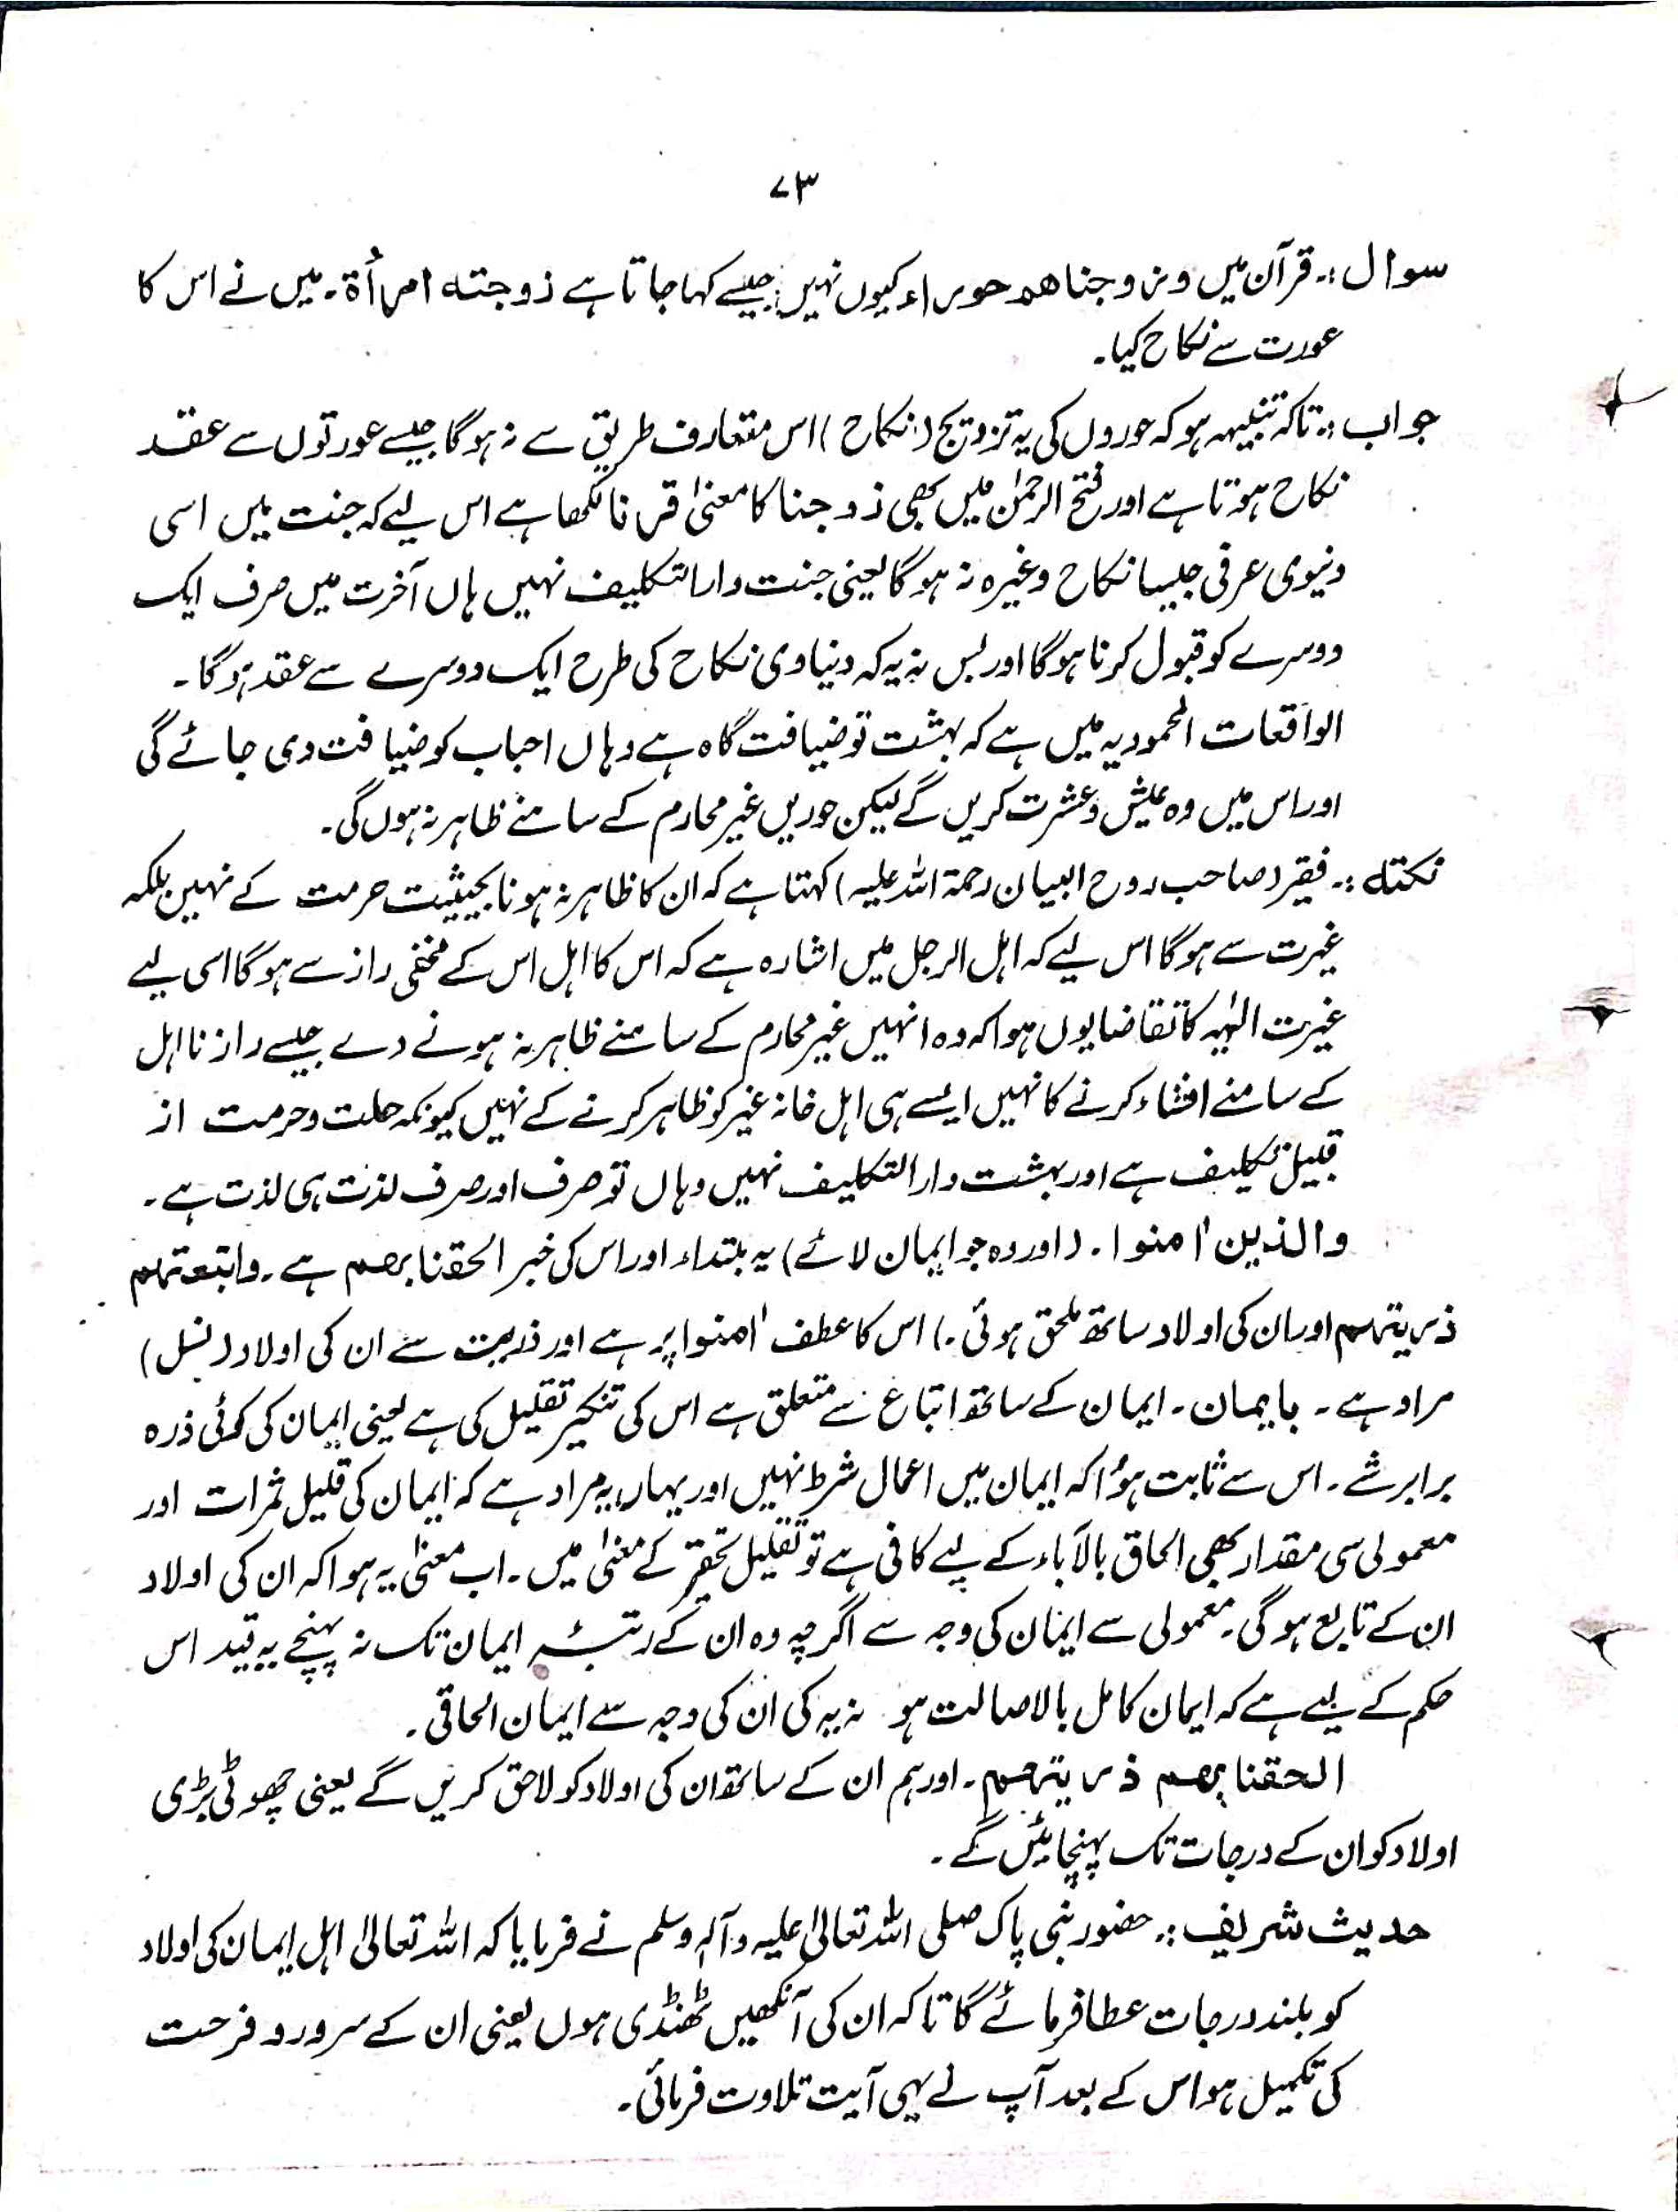 ۷۳
سوال :۔ قرآن میں و زوجناھم حوراء کیوں نہیں جیسے کہا جاتا ہے زوجته امرأۃ۔ میں نے اس کا
عورت سے نکاح کیا۔
جواب :۔ تاکہ تنبیہہ ہو کہ حوروں کی یہ تزویج (نکاح) اس متعارف طریق سے نہ ہوگا جیسے عورتوں سے عقد
نکاح ہوتا ہے اور فتح الرحمٰن میں بھی زوجنا کا معنیٰ قرنا لکھا ہے اس لیے کہ جنت میں اسی
دنیوی عرفی جیسا نکاح وغیرہ نہ ہوگا یعنی جنت دارالتکلیف نہیں ہاں آخرت میں صرف ایک
دوسرے کو قبول کرنا ہوگا اور بس نہ یہ کہ دنیاوی نکاح کی طرح ایک دوسرے سے عقد ہوگا۔
الواقعات المحمودیہ میں ہے کہ بہشت تو ضیافت گاہ ہے وہاں احباب کو ضیافت دی جائے گی
اور اس میں وہ عیش و عشرت کریں گے لیکن حوریں غیر محارم کے سامنے ظاہر نہ ہوں گی۔
نکتہ :۔ فقیر (صاحب روح البیان رحمۃ اللہ علیہ) کہتا ہے کہ ان کا ظاہر نہ ہونا بحیثیت حرمت کے نہیں بلکہ
غیرت سے ہوگا اس لیے کہ اہل الرجل میں اشارہ ہے کہ اس کا اہل اس کے مخفی راز سے ہوگا اسی لیے
غیرت الٰہیہ کا تقاضا یوں ہوا کہ وہ انہیں غیر محارم کے سامنے ظاہر نہ ہونے دے جیسے راز نااہل
کے سامنے افشاء کرنے کا نہیں ایسے ہی اہل خانہ غیر کو ظاہر کرنے کے نہیں کیونکہ حلت و حرمت از
قبیل تکلیف ہے اور بہشت دارالتکلیف نہیں وہاں تو صرف اور صرف لذت ہی لذت ہے۔
والذین اٰمنوا۔ (اور وہ جو ایمان لائے) یہ مبتداء اور اس کی خبر الحقنا بھم ہے۔ واتبعتھم
ذریتھم اور ان کی اولاد ساتھ ملحق ہوئی۔) اس کا عطف اٰمنوا پر ہے اور ذریت سے ان کی اولاد (نسل)
مراد ہے۔ بایمان۔ ایمان کے ساتھ اتباع سے متعلق ہے اس کی تنکیر تقلیل کی ہے یعنی ایمان کی کوئی ذرہ
برابر شے۔ اس سے ثابت ہؤا کہ ایمان میں اعمال شرط نہیں اور یہاں یہ مراد ہے کہ ایمان کی قلیل ثمرات اور
معمولی سی مقدار بھی الحاق بالآباء کے لیے کافی ہے تو تقلیل تحقیر کے معنیٰ میں۔ اب معنیٰ یہ ہوا کہ ان کی اولاد
ان کے تابع ہوگی۔ معمولی سے ایمان کی وجہ سے اگرچہ وہ ان کے رتبۂ ایمان تک نہ پہنچے یہ قید اس
حکم کے لیے ہے کہ ایمان کامل بالاصالت ہو نہ یہ کی ان کی وجہ سے ایمان الحاقی۔
الحقنا بھم ذریتھم۔ اور ہم ان کے ساتھ ان کی اولاد کو لاحق کریں گے یعنی چھوٹی بڑی
اولاد کو ان کے درجات تک پہنچائیں گے۔
حدیث شریف :۔ حضور نبی پاک صلی اللہ تعالیٰ علیہ وآلہٖ وسلم نے فرمایا کہ اللہ تعالیٰ اہل ایمان کی اولاد
کو بلند درجات عطا فرمائے گا تاکہ ان کی آنکھیں ٹھنڈی ہوں یعنی ان کے سرور و فرحت
کی تکمیل ہو اس کے بعد آپ نے یہی آیت تلاوت فرمائی۔